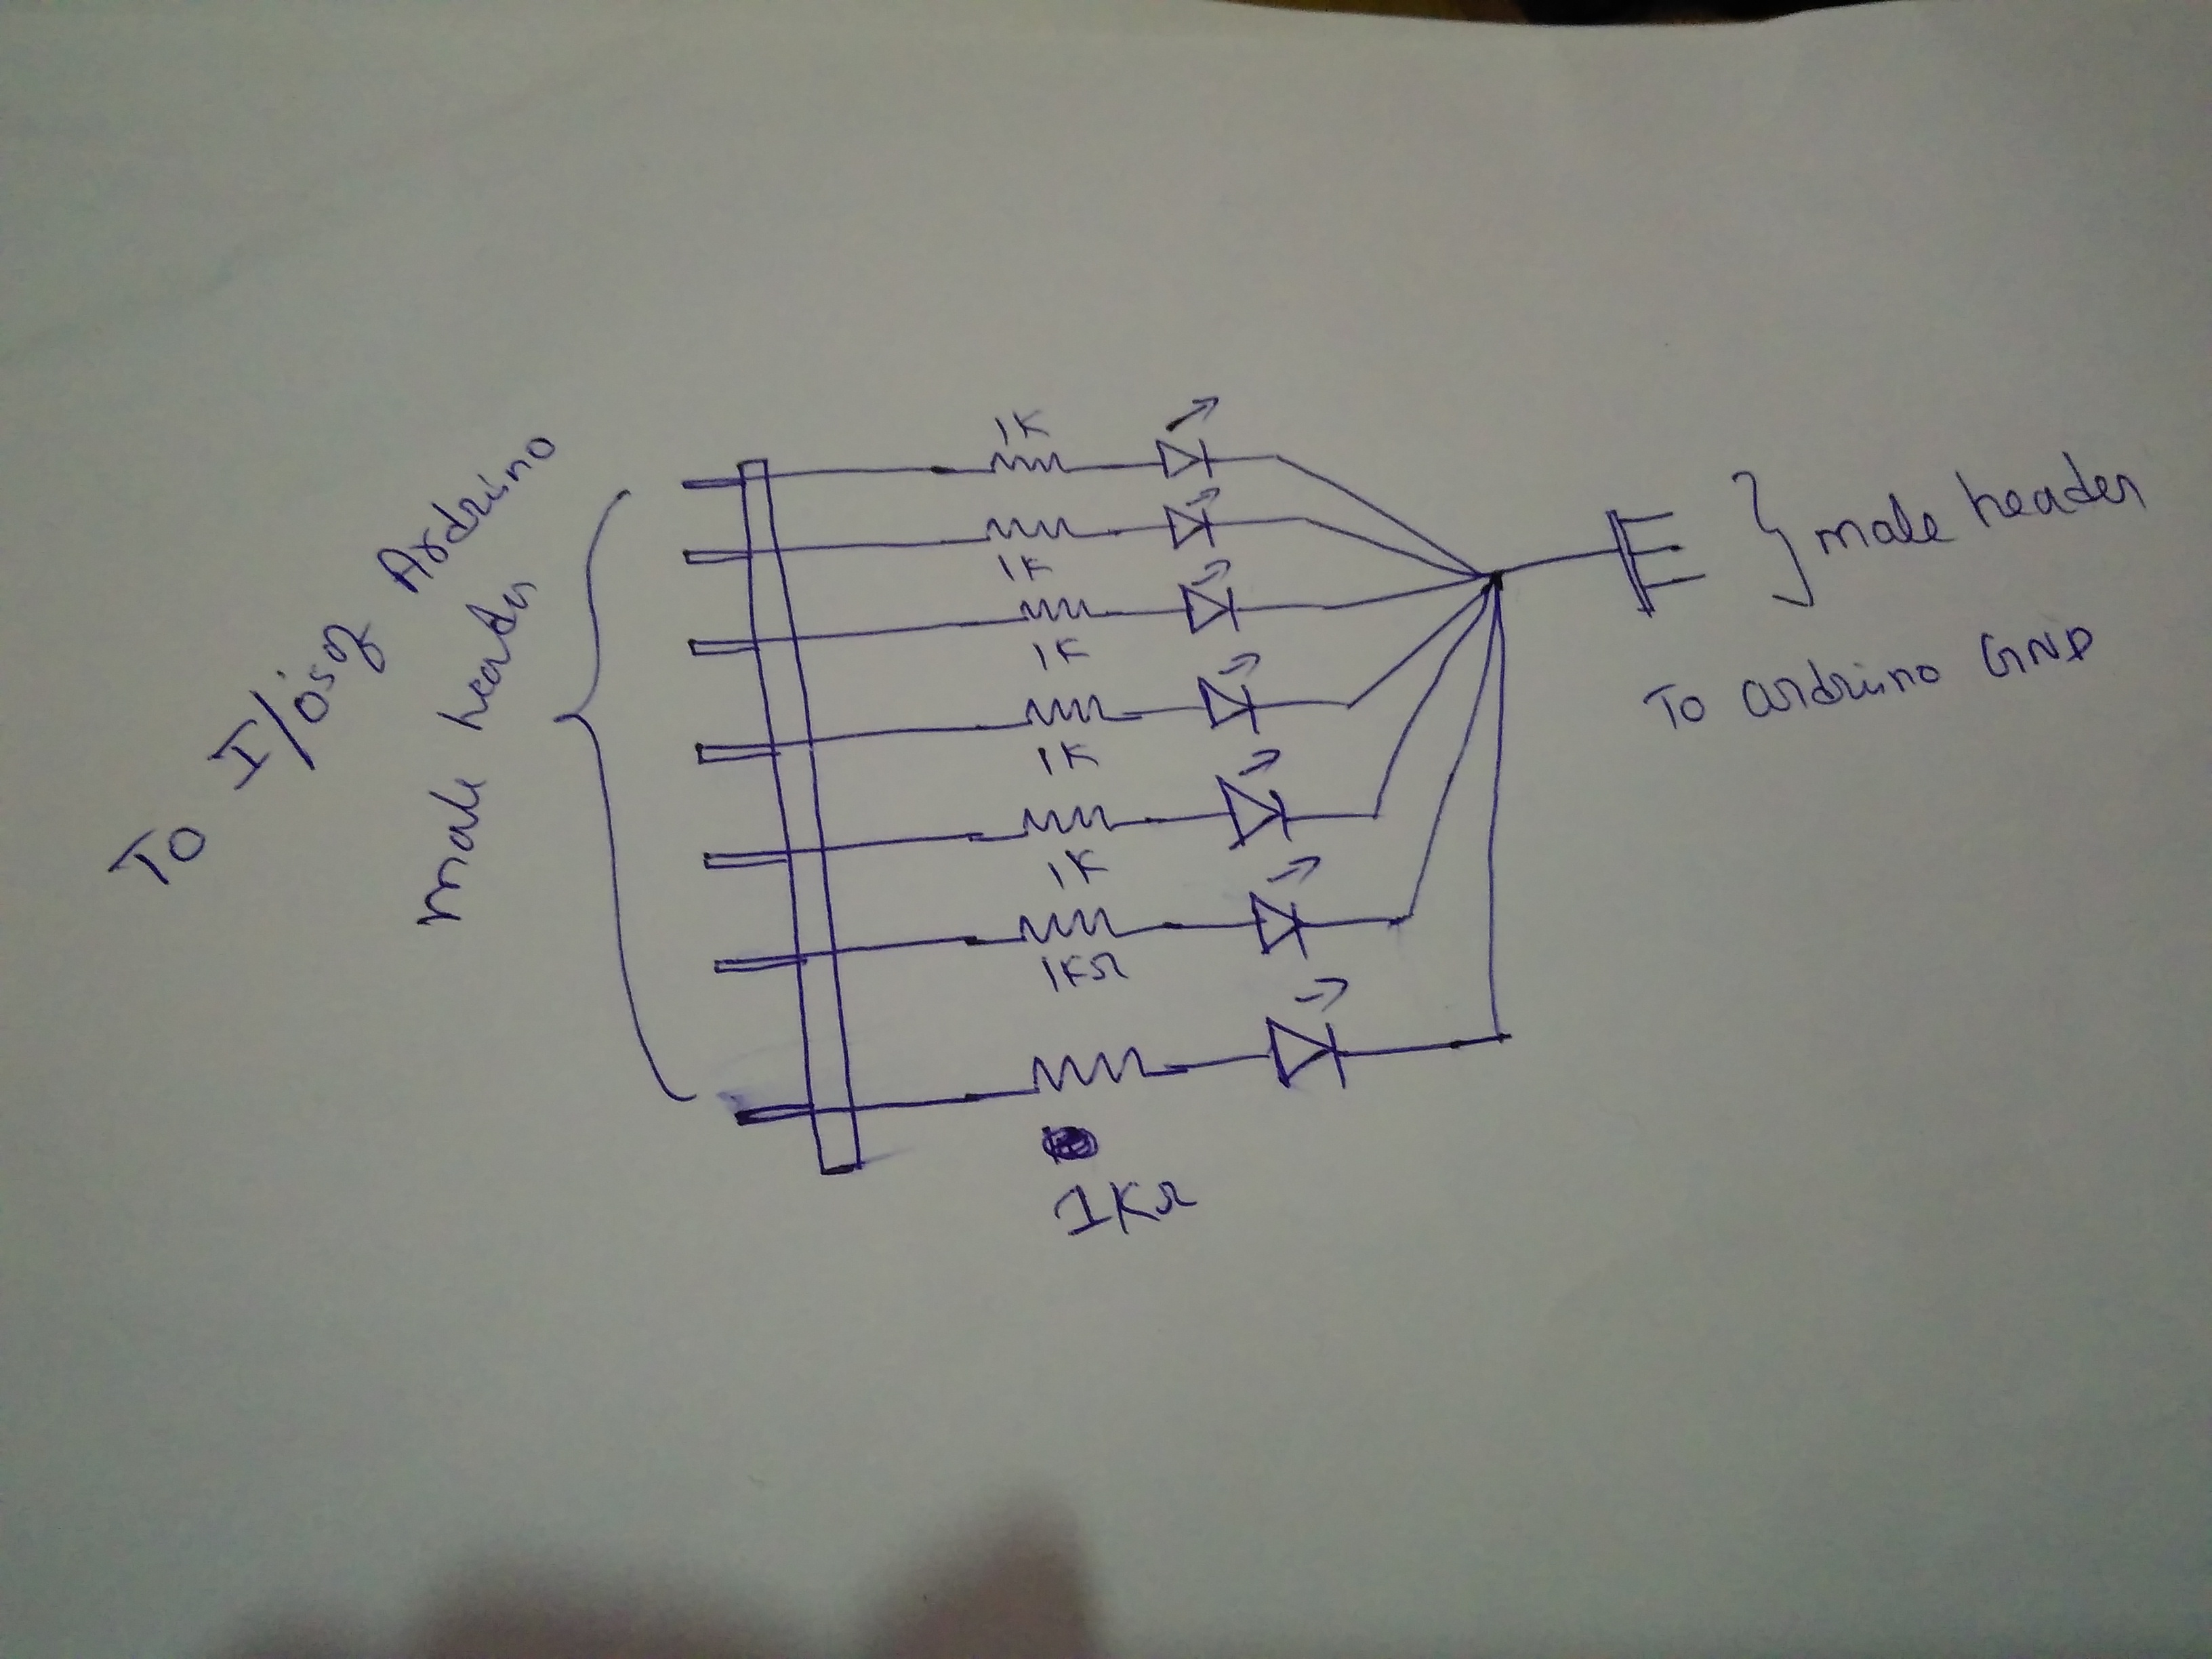 To I/Os of Arduino
male header
1K
1K
1K
1K
1K
1KΩ
1KΩ
male header
To arduino GND